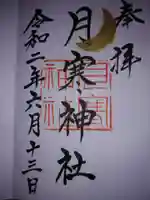 奉拝
月寒神社
令和二年六月十三日